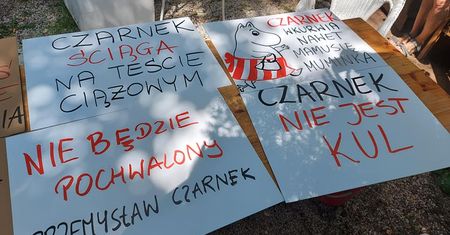 CZARNEK
ŚCIĄGA
NA TEŚCIE
CIĄŻOWYM
CZARNEK
WKURWIŁ
NAWET
MAMUSIĘ
MUMINKA
NIE BĘDZIE
POCHWALONY
PRZEMYSŁAW CZARNEK
CZARNEK
NIE JEST
KUL